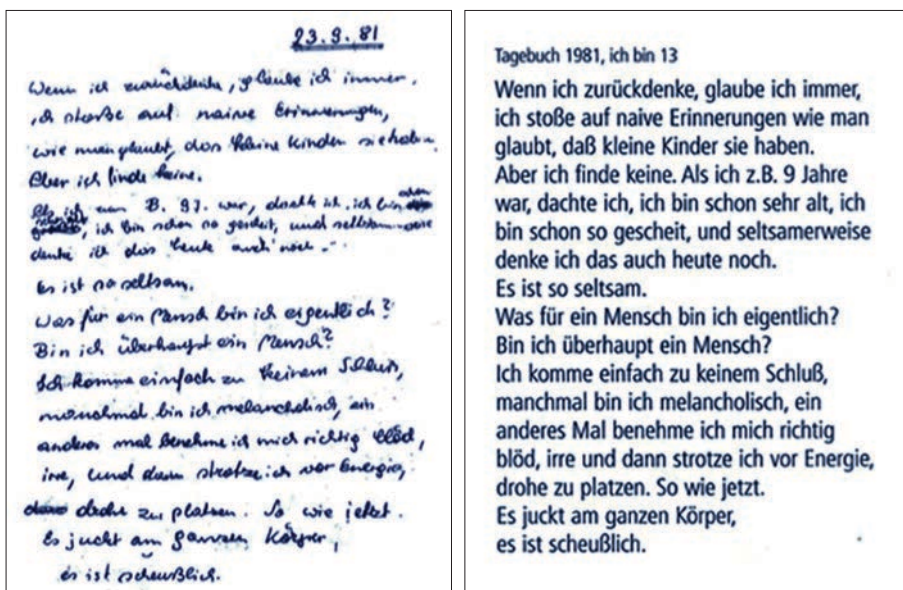 23.9.81
Wenn ich zurückdenke, glaube ich immer,
ich stoße auf naive Erinnerungen,
wie man glaubt, das kleine Kinder sie haben.
Aber ich finde keine.
Als ich zum B. 9J. war, dachte ich, ich bin schon
ich bin schon so gescheit, und seltsamerweise
denke ich das heute auch noch.
Es ist so seltsam.
Was für ein Mensch bin ich eigentlich?
Bin ich überhaupt ein Mensch?
Ich komme einfach zu keinem Schluss,
manchmal bin ich melancholisch, ein
anderes mal benehme ich mich richtig blöd,
irre, und dann strotze ich vor Energie,
drohe zu platzen. So wie jetzt.
Es juckt am ganzen Körper,
es ist scheußlich.
Tagebuch 1981, ich bin 13
Wenn ich zurückdenke, glaube ich immer,
ich stoße auf naive Erinnerungen wie man
glaubt, daß kleine Kinder sie haben.
Aber ich finde keine. Als ich z.B. 9 Jahre
war, dachte ich, ich bin schon sehr alt, ich
bin schon so gescheit, und seltsamerweise
denke ich das auch heute noch.
Es ist so seltsam.
Was für ein Mensch bin ich eigentlich?
Bin ich überhaupt ein Mensch?
Ich komme einfach zu keinem Schluß,
manchmal bin ich melancholisch, ein
anderes Mal benehme ich mich richtig
blöd, irre und dann strotze ich vor Energie,
drohe zu platzen. So wie jetzt.
Es juckt am ganzen Körper,
es ist scheußlich.